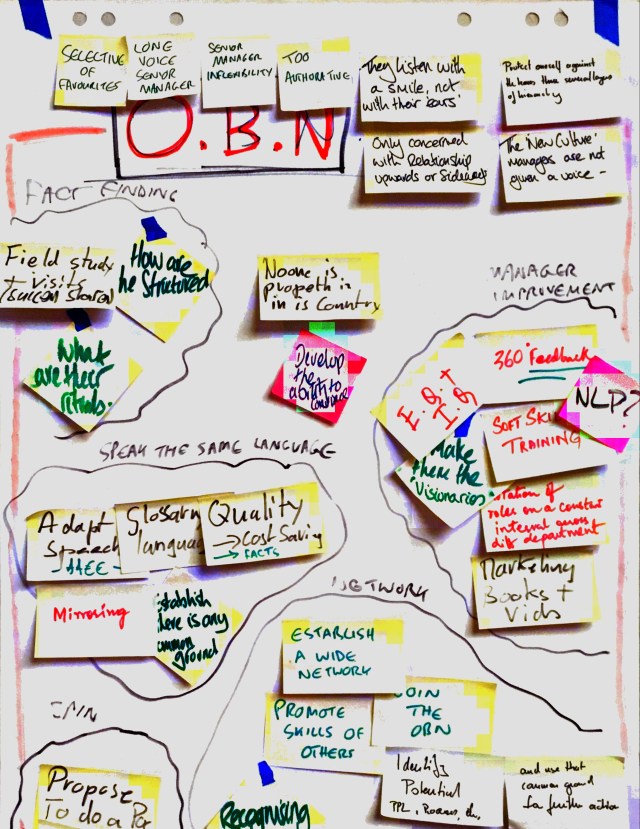 SELECTIVE
OF
FAVOURITES
LONG
VOICE
SENIOR
MANAGER
SENIOR
MANAGER
INFLEXIBILITY
TOO
AUTHORATIVE
They listen with
a smile, not
with their ears'
Protect oneself against
several layers
of hierarchy
O.B.N
Only concerned
with Relationship
upwards or Sideways
The 'New Culture'
managers are not
given a voice -
FACT FINDING
Field study
+ visits
How are
he Structured
What
are their
rituals.
Noone is
in is Country
Develop
the
ability to
MANAGER
IMPROVEMENT
360° Feedback
E.Q.+
I.Q
NLP?
SOFT SKI
TRAINING
Make
them the
Visionaries
roles on a constant
integral across
diff department
Marketing
Books +
Vids
SPEAK THE SAME LANGUAGE
Adapt
Speech
Glossary
languag
Quality
→ Cost Saving
→ FACTS
Mirroring
Establish
there is any
common
ground
NETWORK
ESTABLISH
A WIDE
NETWORK
PROMOTE
SKILLS OF
OTHERS
JOIN
THE
OBN
Identify
Potential
and use that
common ground
for further action
Recognising
JOIN
Propose
To do a